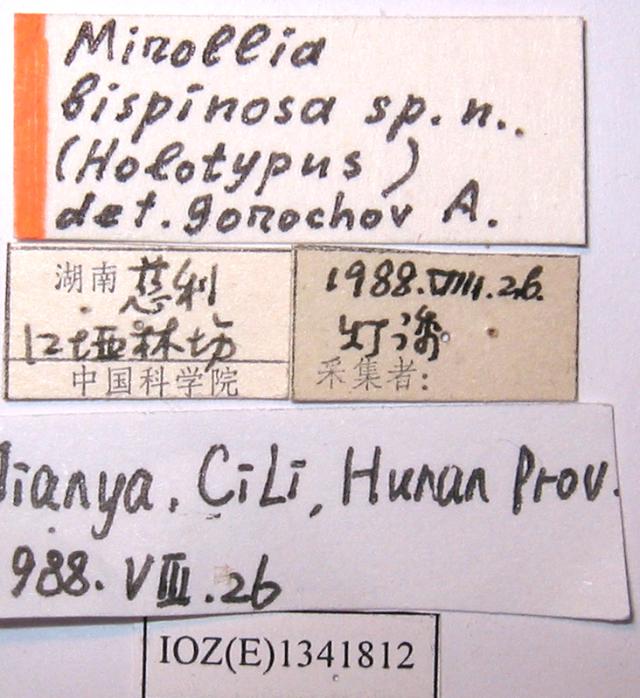 Mirollia
bispinosa sp. n..
(Holotypus)
det. gorochov A.
湖南 慈利
江垭林场
中国科学院
1988.VIII.26.
灯诱
采集者:
Jianya, CiLi, Hunan Prov.
988. VIII.26
IOZ(E)1341812